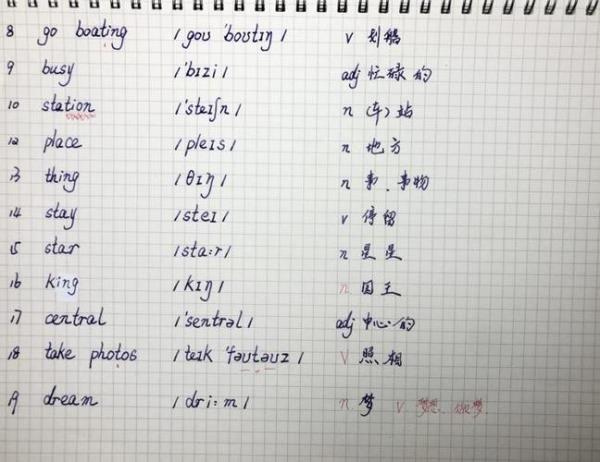 8 go boating /gou 'boutɪŋ/ v 划船
9 busy /'bɪzi/ adj 忙碌的
10 station /'steɪʃn/ n (车)站
12 place /pleɪs/ n 地方
13 thing /θɪŋ/ n 事.事物
14 stay /steɪ/ v 停留
15 star /sta:r/ n 星星
16 king /kɪŋ/ n 国王
17 central /'sentrəl/ adj 中心的
18 take photos /teɪk 'fəutəuz/ v 照相
19 dream /dri:m/ n 梦 v 梦想.做梦